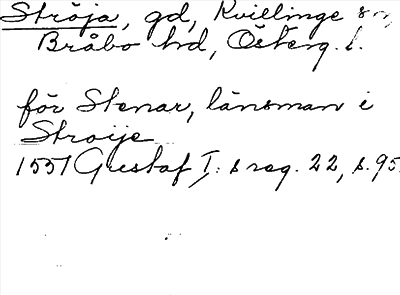 Ströja, gd, Kvillinge sn,
Bråbo hd, Österg. l.
för Stenar, länsman i
Stroije
1551 Gustaf I: s reg. 22, s. 95.